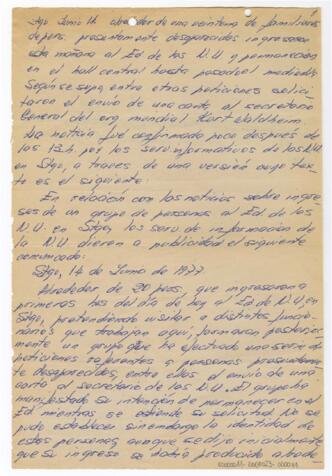 Stgo Junio 14 alrededor de una veintena de familiares
de pers. presuntamente desaparecidos ingresaron
esta mañana al Ed de las N.U y permanecían
en el hall central hasta pasado el mediodía.
Según se supo, entre otras peticiones solici
taron el envío de una carta al secretario
General del org mundial Kurt Waldheim
La noticia fue confirmada poco después de
las 13 h, por los serv. informativos de las N.U
en Stgo, a traves de una versión cuyo tex-
to es el siguiente:
En relación con las noticias sobre ingre
ses de un grupo de personas al Ed. de las
N.U. en Stgo, los serv. de información de
la N.U dieron a publicidad el siguiente
comunicado:
Stgo, 14 de Junio de 1977
Alrededor de 20 pers, que ingresaron a
primeras hrs del día de hoy al Ed de N.U, en
Stgo, pretendiendo visitar a distintos funcio-
narios que trabajan aquí, formaron posterior-
mente un grupo que ha efectuado una serie de
peticiones referentes a personas presuntamente
desaparecidas, entre ellas el envío de una
carta al secretario de las N.U. El grupo ha
manifestado su intención de permanecer en el
Ed mientras se atiende su solicitud. No se
pudo establecer sin embargo la identidad de
estas personas, aunque se dijo inicialmente
que su ingreso se había producido